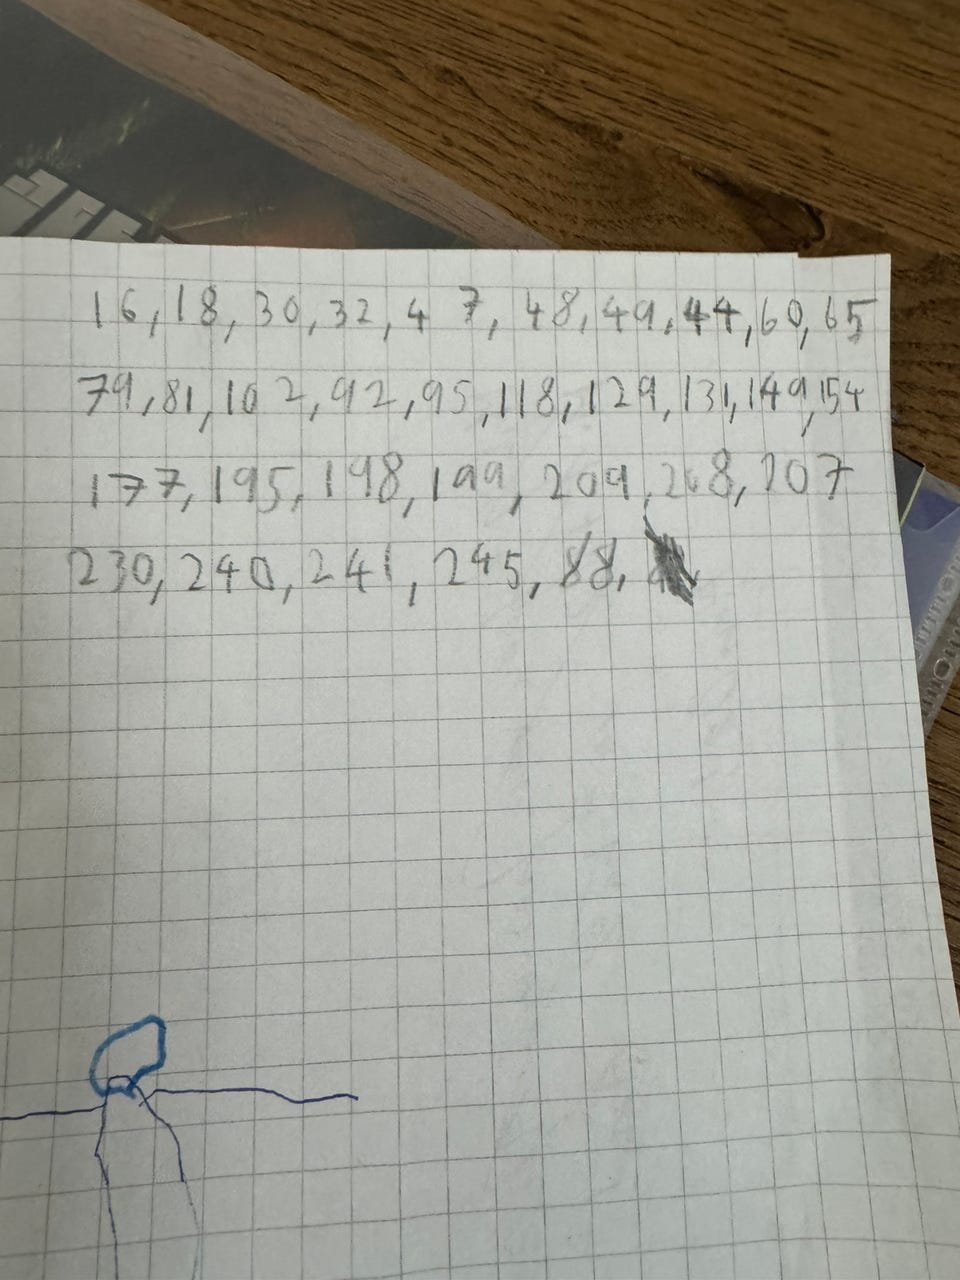 16, 18, 30, 32, 47, 48, 49, 44, 60, 65
79, 81, 102, 92, 95, 118, 129, 131, 149, 154
177, 195, 198, 199, 209, 208, 207
230, 240, 241, 245, 88,